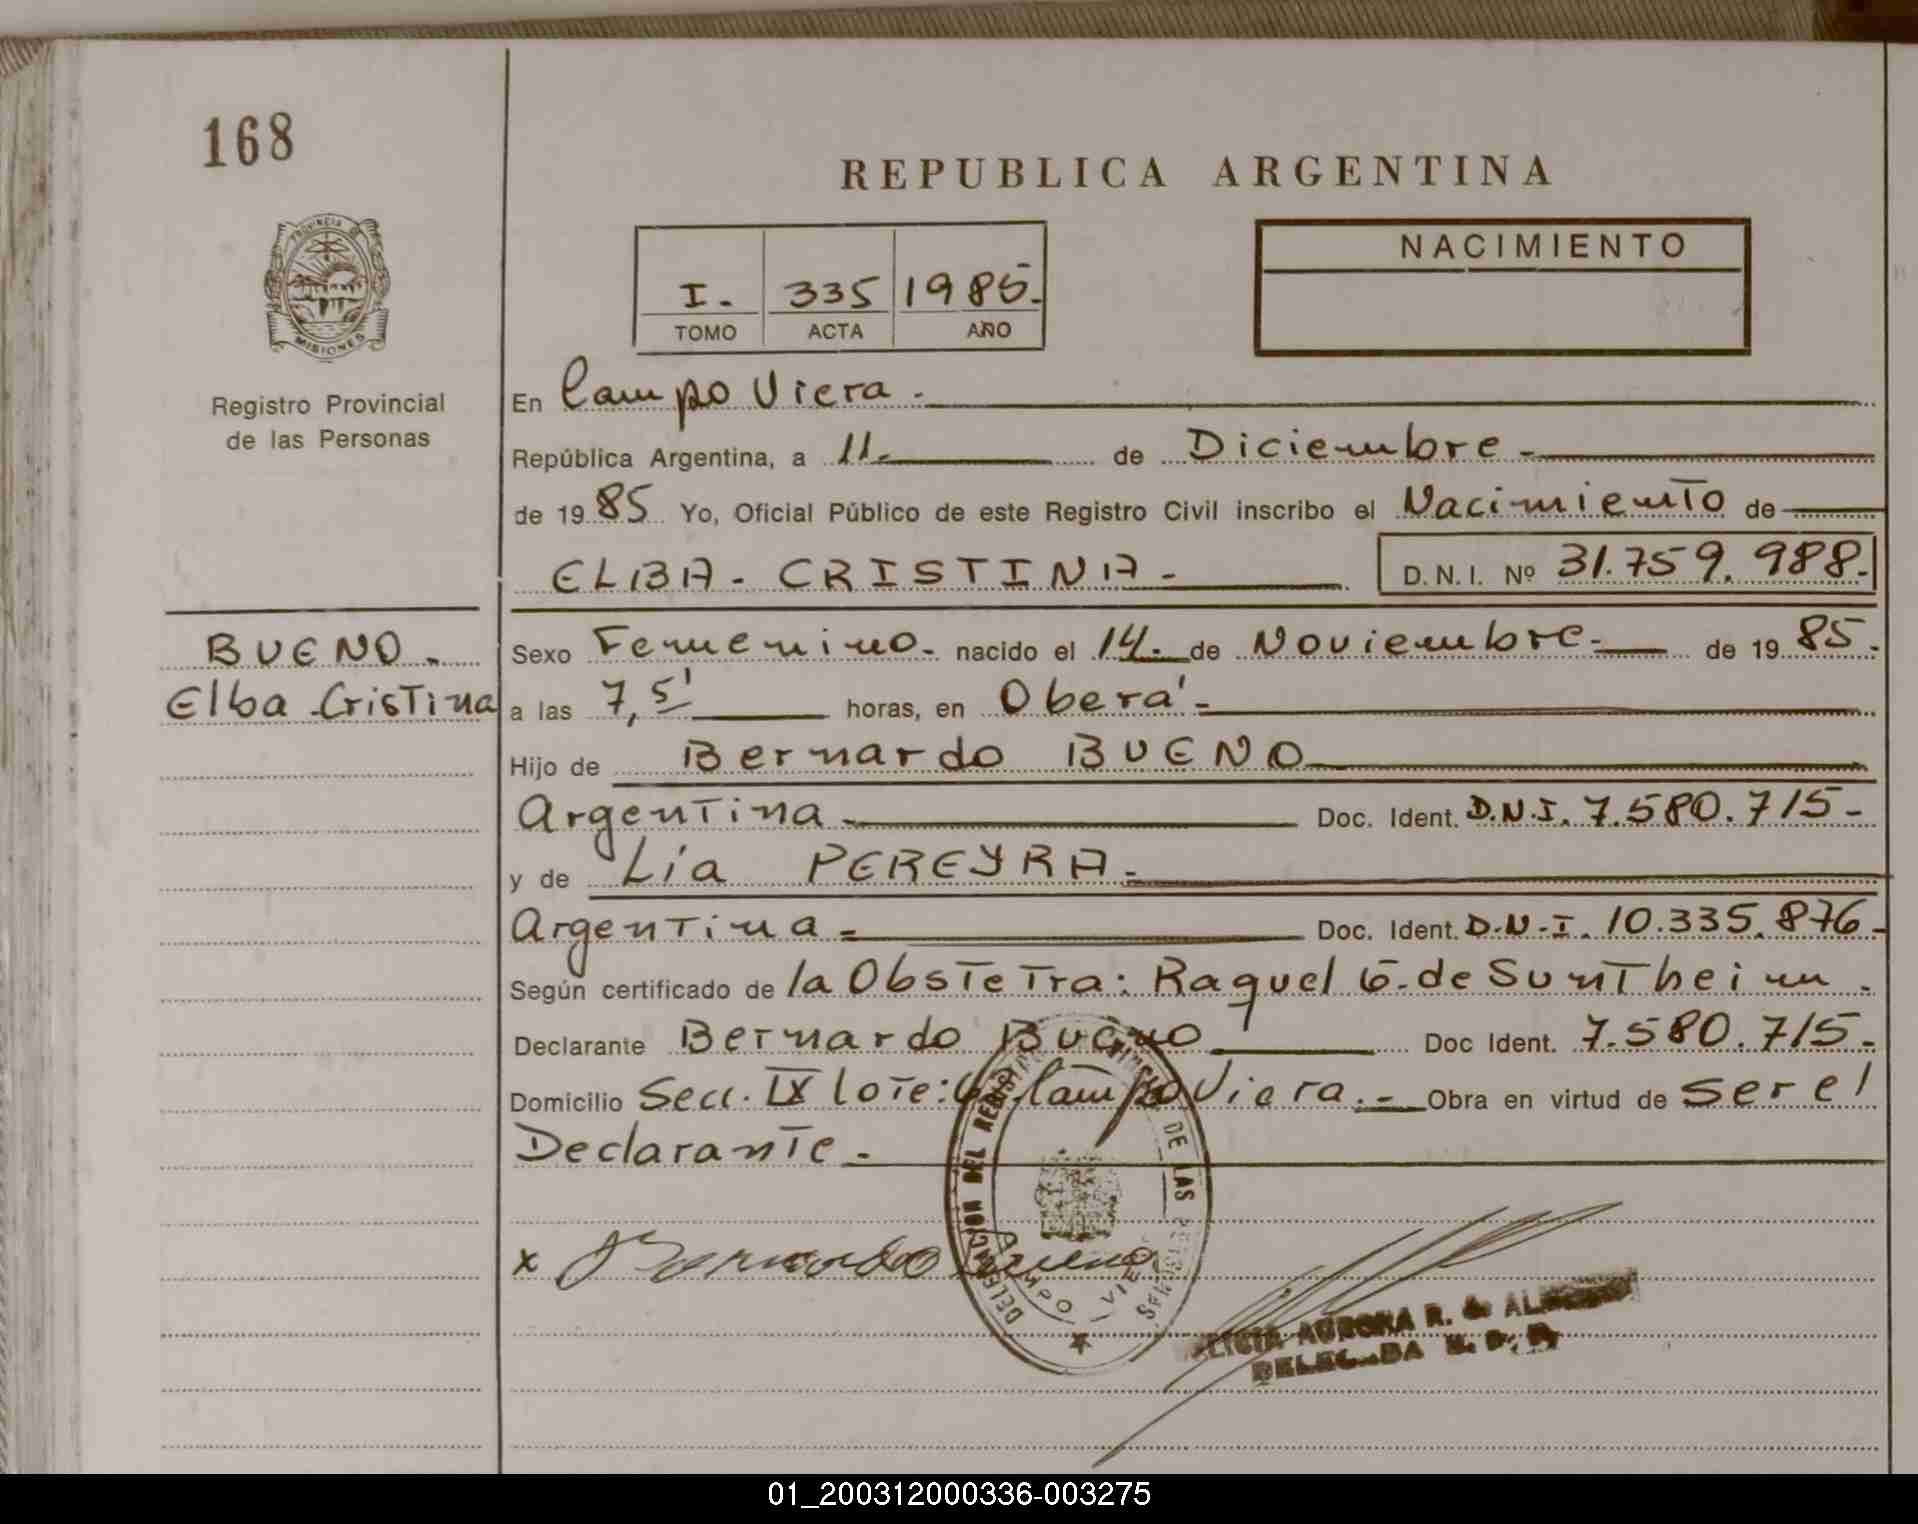 168
REPUBLICA ARGENTINA
PROVINCIA DE
MISIONES
NACIMIENTO
I. 335 1985.
TOMO ACTA AÑO
Registro Provincial
de las Personas
En Campo Viera.
República Argentina, a 11. de Diciembre
de 1985 Yo, Oficial Público de este Registro Civil inscribo el Nacimiento de
ELBA - CRISTINA - D.N.I. Nº 31.759.988.
BUENO.
Elba Cristina
Sexo Femenino. nacido el 14. de Noviembre de 1985.
a las 7,5' horas, en Oberá
Hijo de Bernardo BUENO
Argentina Doc. Ident. D.N.I. 7.580.715
y de Lía PEREYRA
Argentina Doc. Ident. D.N.I. 10.335.876
Según certificado de la Obstetra: Raquel G. de Suntheim.
Declarante Bernardo Bueno Doc Ident. 7.580.715
Domicilio Secc. IX lote: Campo Viera. Obra en virtud de ser el
Declarante.
DELEGACION DEL REGISTRO DE LAS
CAMPO VIERA
x Bernardo Bueno
ALICIA AURORA R. de
DELEGADA R. P. P.
01_200312000336-003275